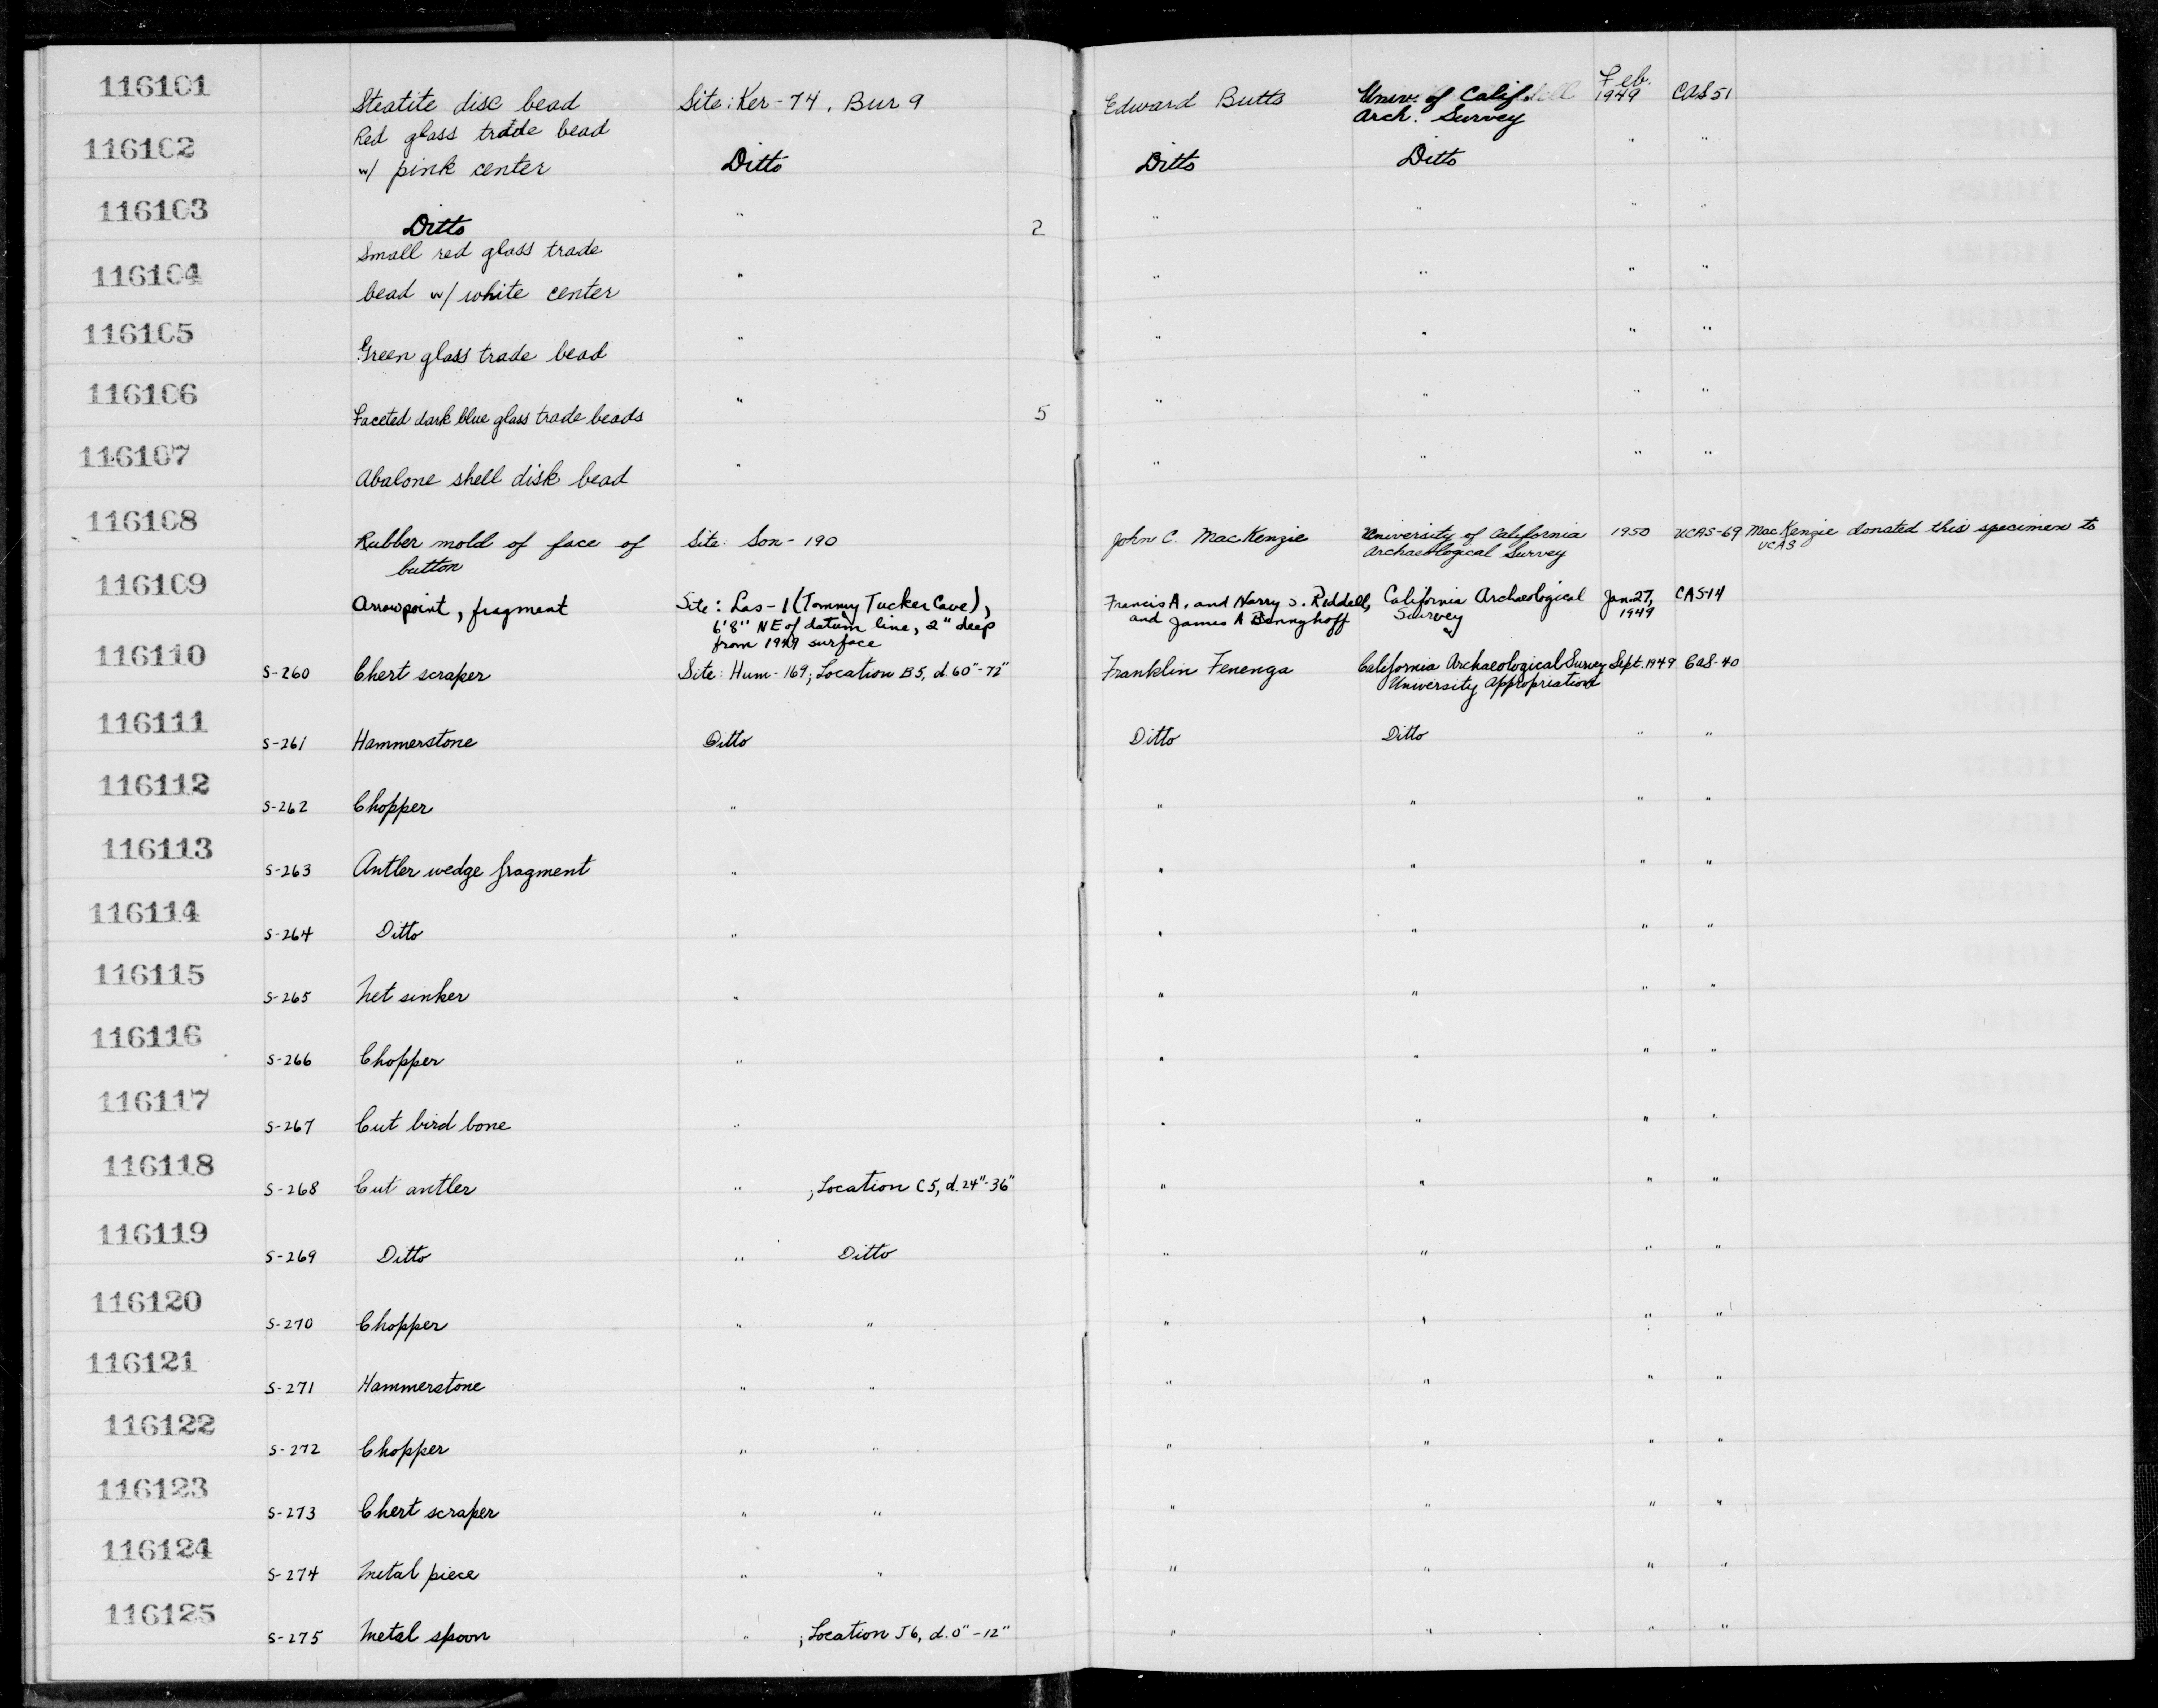 116101 Steatite disc bead Site: Ker-74, Bur 9 Edward Butts Univ. of Calif. Arch. Survey Feb. 1949 CAS 51
116102 Red glass trade bead w/ pink center Ditto Ditto Ditto " "
116103 Ditto " 2 " " " "
116104 Small red glass trade bead w/ white center " " " " "
116105 Green glass trade bead " " " " "
116106 Faceted dark blue glass trade beads " 5 " " " "
116107 Abalone shell disk bead " " " " "
116108 Rubber mold of face of button Site: Son-190 John C. MacKenzie University of California Archaeological Survey 1950 UCAS-69 MacKenzie donated this specimen to UCAS
116109 Arrowpoint, fragment Site: Las-1 (Tommy Tucker Cave), 6'8" NE of datum line, 2" deep from 1949 surface Francis A. and Harry S. Riddell, and James A Bennyhoff California Archaeological Survey Jan. 27, 1949 CAS-14
116110 S-260 Chert scraper Site: Hum-169; Location B5, d. 60"-72" Franklin Fenenga California Archaeological Survey University Appropriation Sept. 1949 CAS-40
116111 S-261 Hammerstone Ditto Ditto Ditto " "
116112 S-262 Chopper " " " " "
116113 S-263 Antler wedge fragment " " " " "
116114 S-264 Ditto " " " " "
116115 S-265 Net sinker " " " " "
116116 S-266 Chopper " " " " "
116117 S-267 Cut bird bone " " " " "
116118 S-268 Cut antler " ; Location C5, d. 24"-36" " " " "
116119 S-269 Ditto " Ditto " " " "
116120 S-270 Chopper " " " " " "
116121 S-271 Hammerstone " " " " " "
116122 S-272 Chopper " " " " " "
116123 S-273 Chert scraper " " " " " "
116124 S-274 Metal piece " " " " " "
116125 S-275 Metal spoon " ; Location J6, d. 0"-12" " " " "